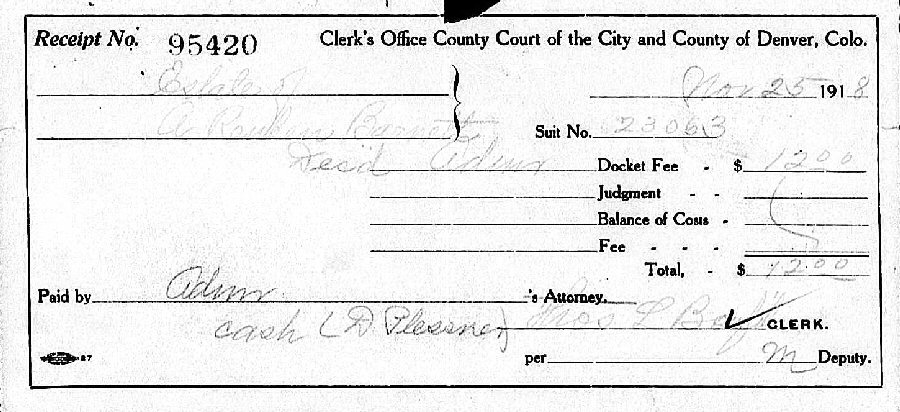 Receipt No. 95420 Clerk's Office County Court of the City and County of Denver, Colo.
Estate of
Nov 25 1918
A Reuben Barnett
Suit No. 23063
Decd Admr
Docket Fee - $ 12 00
Judgment - -
Balance of Costs -
Fee - - -
Total, - $ 12 00
Paid by Admr 's Attorney.
cash (D Plessner)
Thos L CLERK.
87 per M Deputy.